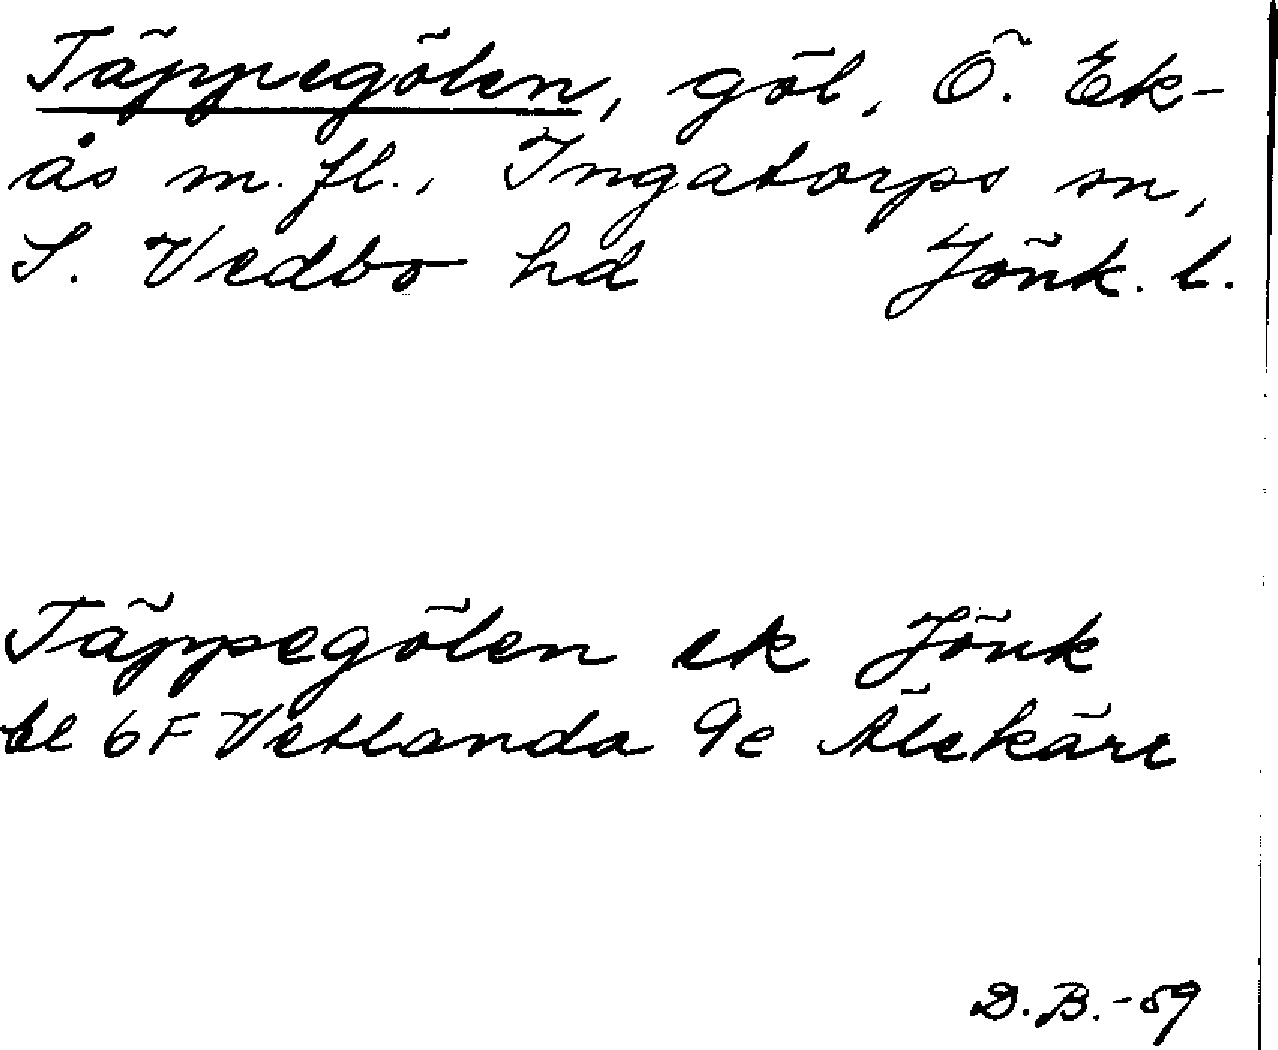 Täppegölen, göl, Ö. Ek-
ås m.fl., Ingatorps sn,
S. Vedbo hd Jönk. l.
Täppegölen ek Jönk
bl 6F Vetlanda 9e Älekärr
D.B.-59